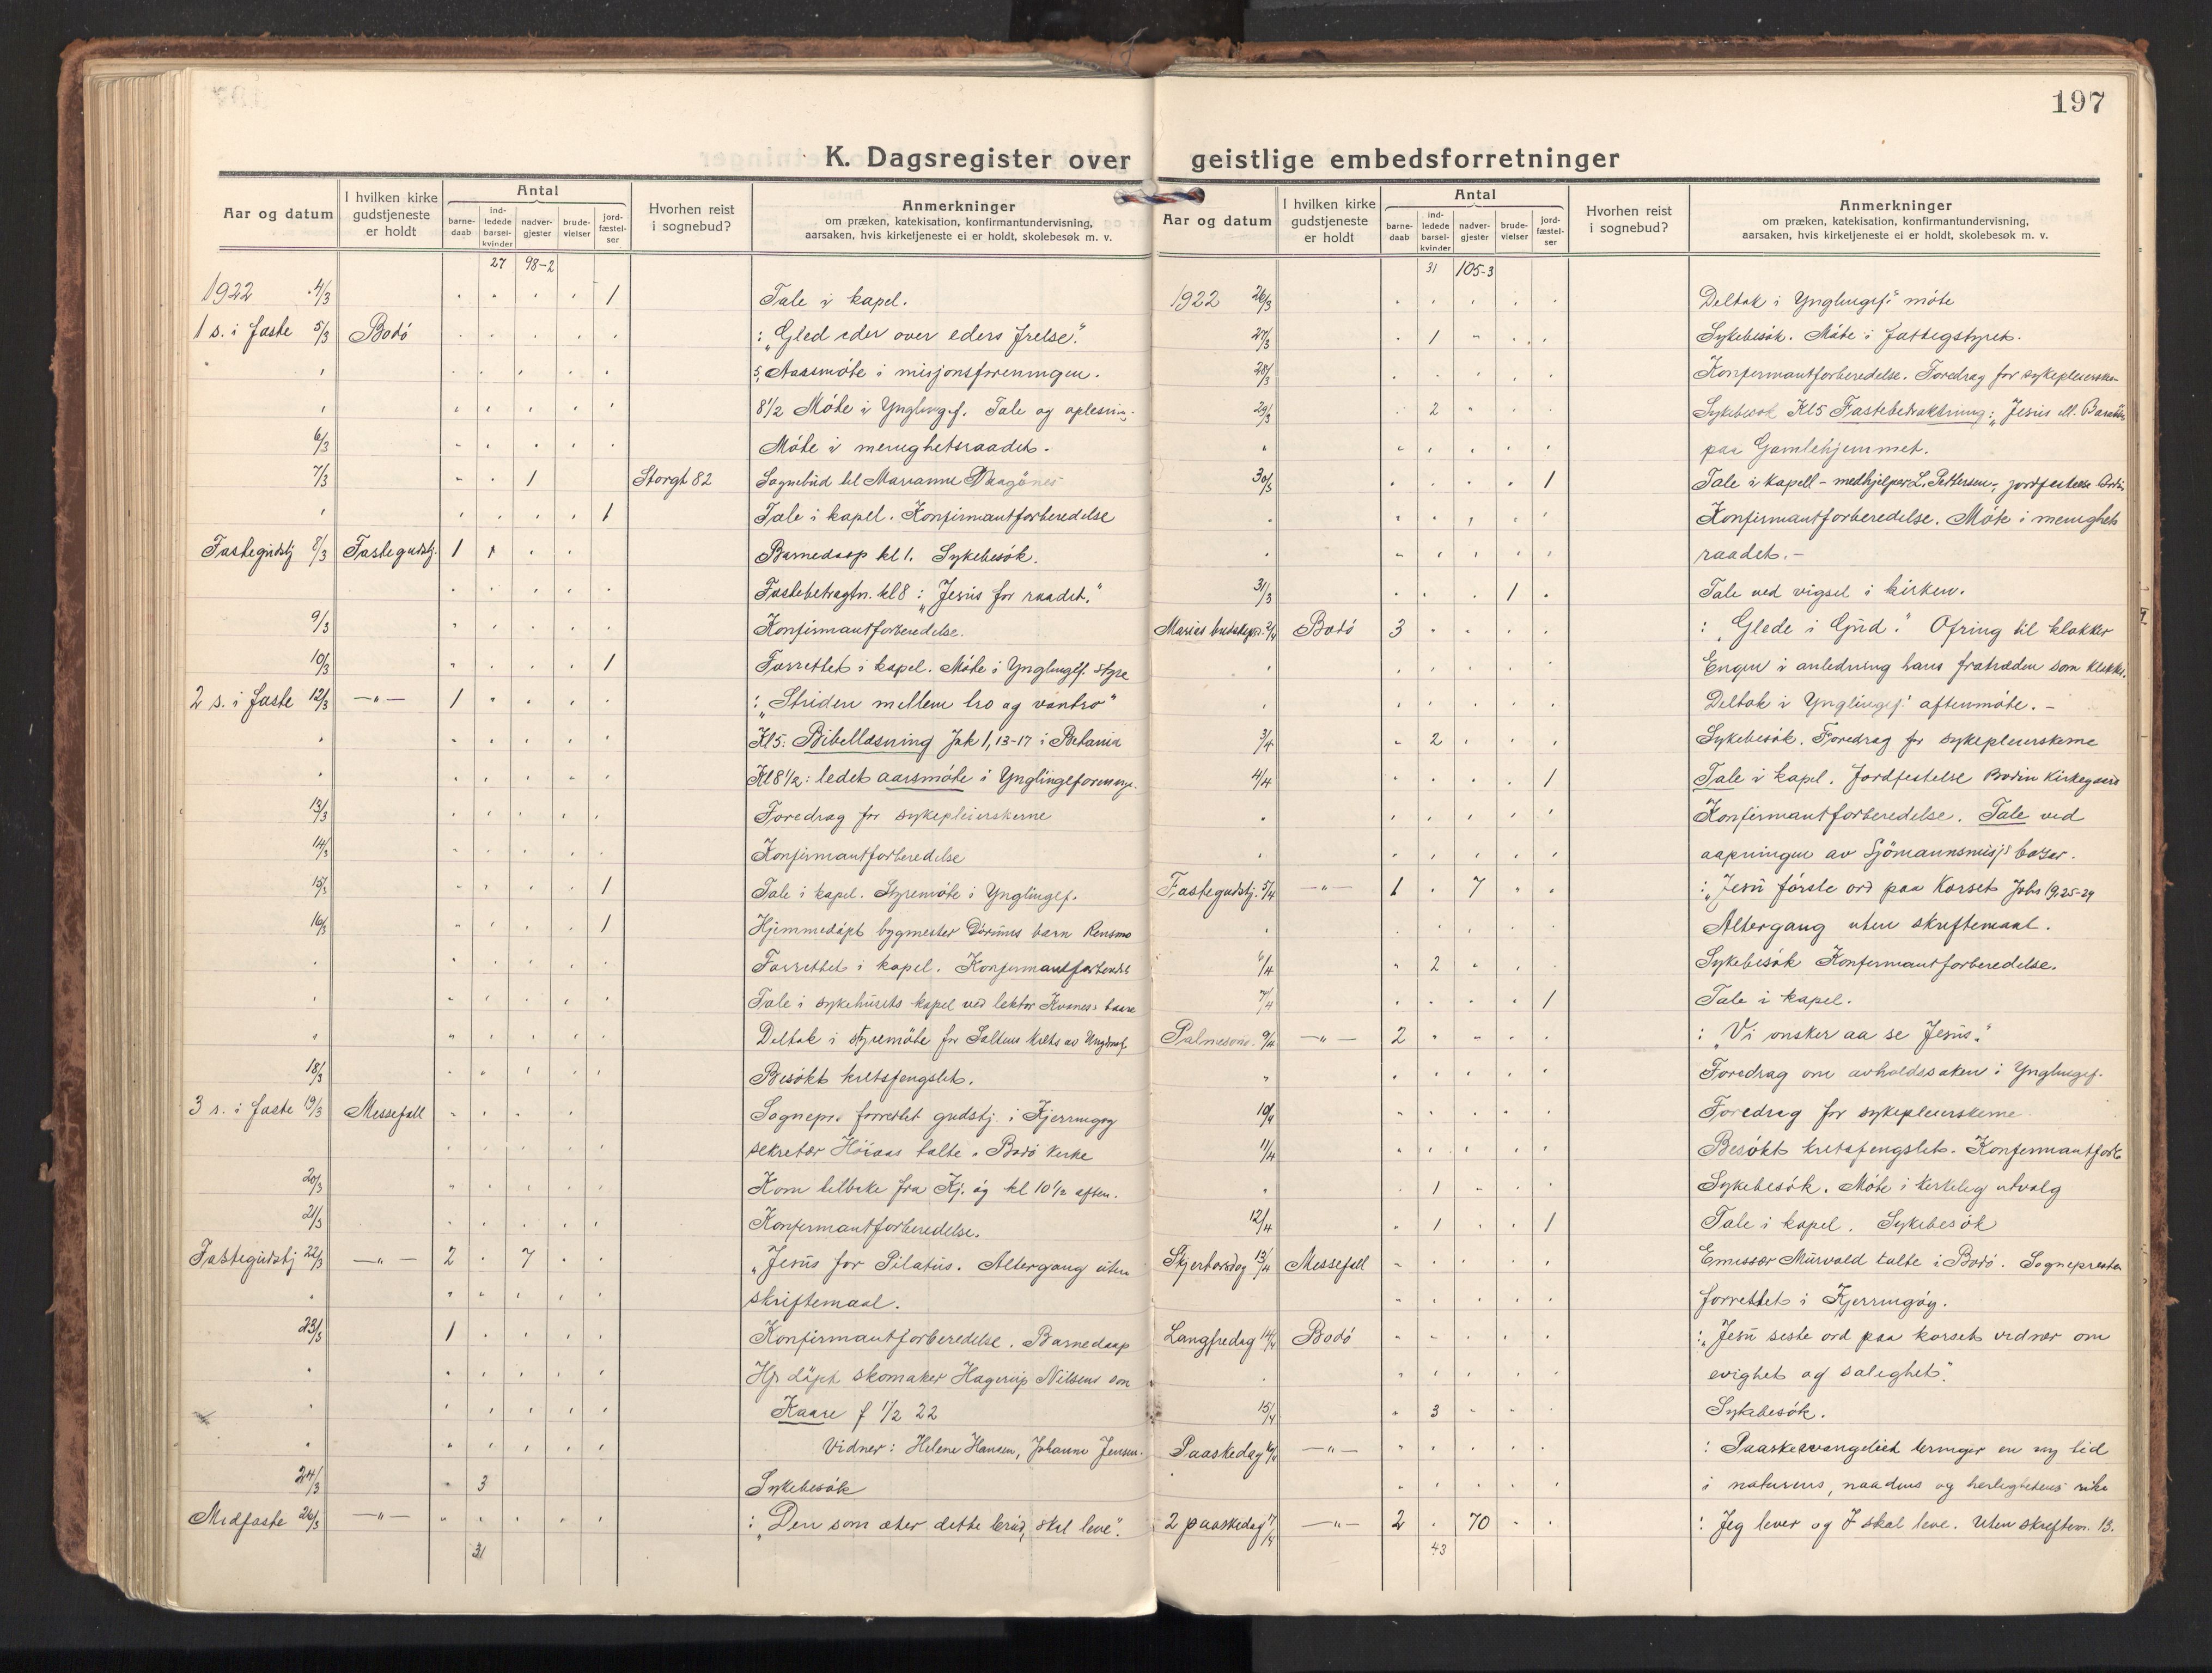 197
K. Dagsregister over geistlige embedsforretninger
Aar og datum
I hvilken kirke gudstjeneste er holdt
Antal
barne-daab
ind-ledede barsel-kvinder
nadver-gjester
brude-vielser
jord-fæstel-ser
Hvorhen reist i sognebud?
Anmerkninger
om præken, katekisation, konfirmantundervisning,
aarsaken, hvis kirketjeneste ei er holdt, skolebesøk m. v.
27 98-2
1922 4/3 1 Tale i kapel.
1 s. i faste 5/3 Bodó : „Gled eder over eders frelse".
5, Aarsmóte i misjonsforeningen.
8 1/2 Móte i Ynglingef. Tale og oplesning.
6/3 Móte i menighetsraadet.
7/3 1 Storgt 82 Sognebud til Marianne
1 Tale i kapel. Konfirmantforberedelse
Fastegudstj 8/3 Fastegudstj. 1 1 Barnedaap kl 1. Sykebesók.
Fastebetragtn. kl 8 : „Jesus for raadet."
9/3 Konfirmantforberedelse.
10/3 1 Forrettet i kapel. Móte i Ynglingf. styre
2 s. i faste 12/3 —„— 1 : „Striden mellem tro og vantro"
Kl 5: Bibellæsning Jak 1, 13-17 i Betania
Kl 8 1/2: ledet aarsmóte i Ynglingeforening.
13/3 Foredrag for sykepleierskerne
14/3 Konfirmantforberedelse
15/3 1 Tale i kapel. Styremóte i Ynglingef.
16/3 1 Hjemmedópt bygmester barn
Forrettet i kapel. Konfirmantforbered.
Tale i sykehusets kapel ved lektor Kvanes's baare
Deltok i styremóte for Saltens krets av
18/3 Besókt kretsfengslet.
3 s. i faste 19/3 Messefall Sognepr. forrettet gudstj. i Kjerringøy
sekretær talte i Bodó kirke
20/3 Kom tilbake fra Kj. óg kl 10 1/2 aften.
21/3 Konfirmantforberedelse.
Fastegudstj 22/3 —„— 2 7 „Jesus for Pilatus. Altergang uten
skriftemaal.
23/3 1 Konfirmantforberedelse. Barnedaap
Hj. döpt skomaker Hagerup Nilsens son
Kaare f 1/2 22
Vidner: Helene Hansen, Johanne Jensen.
24/3 3 Sykebesók
Midfaste 26/3 —„— : „Den som æter dette bród, skal leve".
31
Aar og datum
I hvilken kirke gudstjeneste er holdt
Antal
barne-daab
ind-ledede barsel-kvinder
nadver-gjester
brude-vielser
jord-fæstel-ser
Hvorhen reist i sognebud?
Anmerkninger
om præken, katekisation, konfirmantundervisning,
aarsaken, hvis kirketjeneste ei er holdt, skolebesøk m. v.
31 105-3
1922 26/3 Deltok i Ynglingef's móte
27/3 1 Sykebesók. Móte i fattigstyret.
28/3 Konfirmantforberedelse. Foredrag for sykepleiersker
29/3 2 Sykebesók Kl 5 Fastebetraktning: „Jesus ell. Barabbas
paa Gamlehjemmet.
30/3 1 Tale i kapell - medhjelper L. Pettersen, jordfestelse Bodin
Konfirmantforberedelse. Móte i menighets
raadet.-
31/3 1 Tale ved vigsel i kirken.
Maries budskapsd. 2/4 Bodó 3 : „Glede i Gud." Ofring til klokker
Engen i anledning hans fratræden som klokker.
Deltok i Ynglingef. aftenmóte.-
3/4 2 Sykebesók. Foredrag for sykepleierskerne
4/4 1 Tale i kapel. Jordfestelse Bodin Kirkegaard
Konfirmantforberedelse. Tale ved
aapningen av Sjömannsmisj's bazar.
Fastegudstj. 5/4 —„— 1 7 : „Jesu fórste ord paa Korset Johs 19,25-29
Altergang uten skriftemaal.
6/4 2 Sykebesók Konfirmantforberedelse.
7/4 1 Tale i kapel.
Palmesønd. 9/4 —„— 2 : „Vi ónsker aa se Jesus."
Foredrag om avholdssaken i Ynglingef.
10/4 Foredrag for sykepleierskerne
11/4 Besókt kretsfengslet. Konfirmantforb.
1 Sykebesók. Móte i kirkelig utvalg
12/4 1 1 Tale i kapel. Sykebesók
Skjertorsdag 13/4 Messefall Emissær Murvold talte i Bodó. Sognepresten
forrettet i Kjerringóy.
Langfredag 14/4 Bodó : „Jesu siste ord paa korset vidner om
evighet og salighet".
15/4 3 Sykebesók.
Paaskedag 16/4 —„— : Paaskeevangeliet bringer en ny tid
i naturens, naadens og herlighetens rike
2 paaskedag 17/4 —„— 2 70 : Jeg lever og I skal leve. Uten skriftem. 13.
43